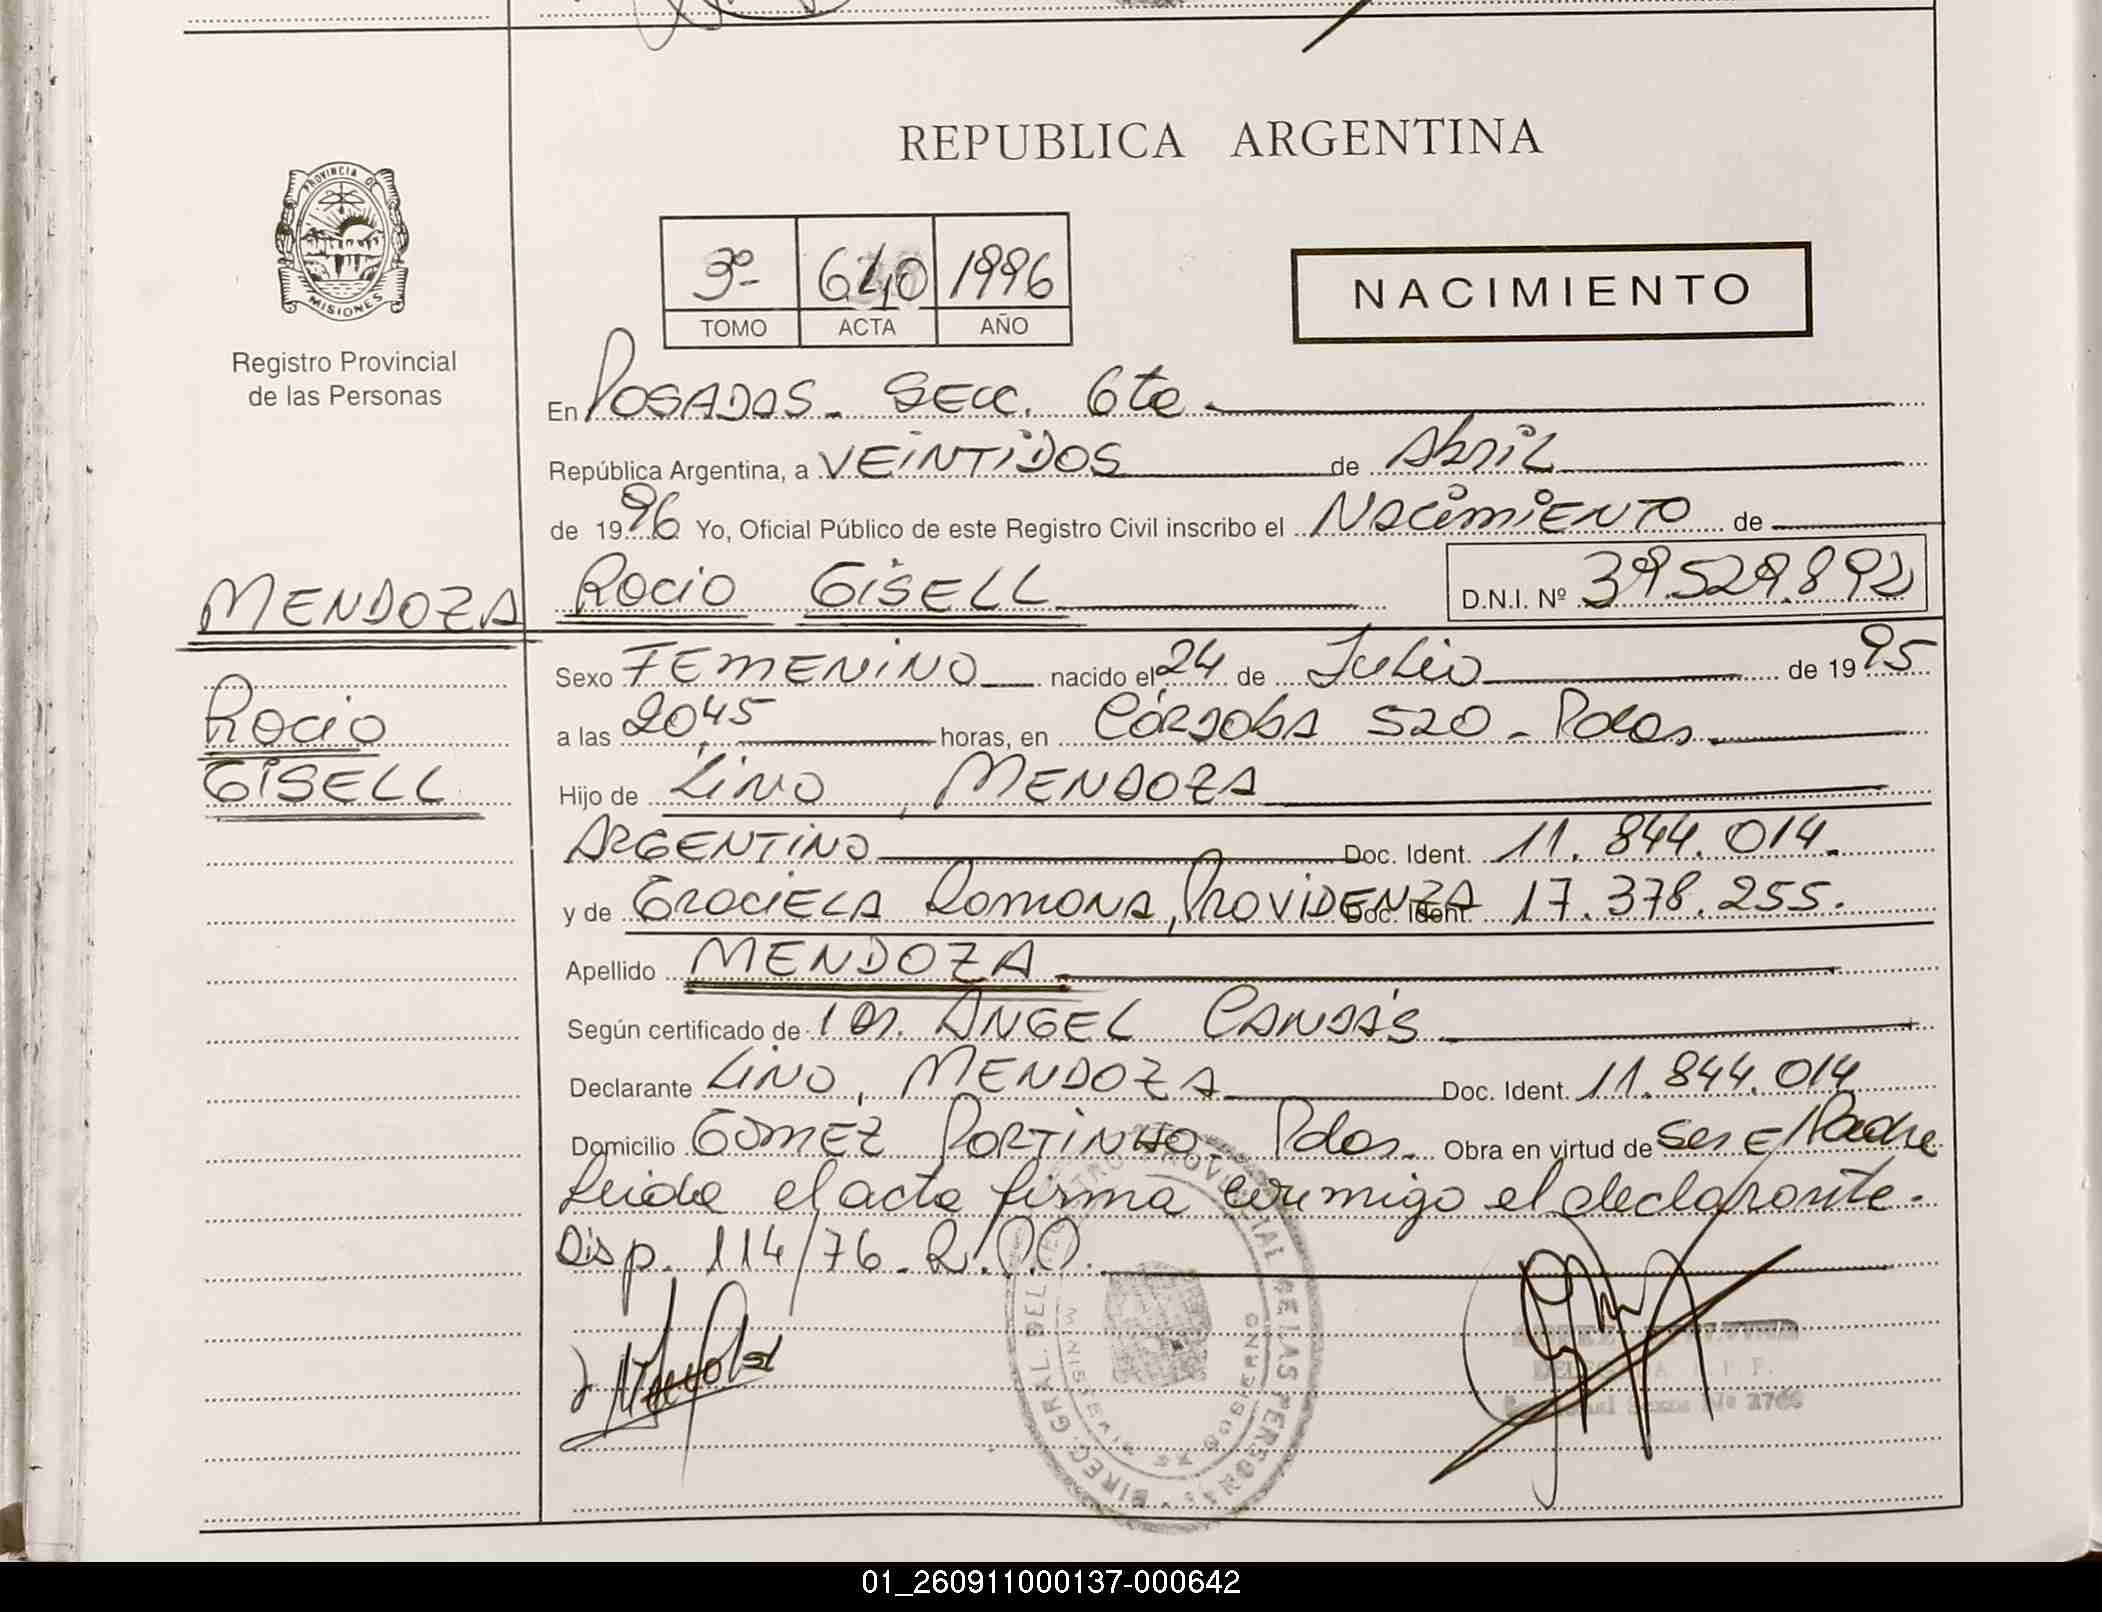 REPUBLICA ARGENTINA
PROVINCIA DE
MISIONES
Registro Provincial
de las Personas
3º- 640 1996
TOMO ACTA AÑO
NACIMIENTO
En POSADAS - SECC. 6ta
República Argentina, a VEINTIDOS de Abril
de 1996 Yo, Oficial Público de este Registro Civil inscribo el NACIMIENTO de
MENDOZA ROCIO GISELL D.N.I. Nº 39.529.892
Sexo FEMENINO nacido el 24 de Julio de 1995
ROCIO
a las 20,45 horas, en CÓRDOBA 520 - Pdas.
GISELL
Hijo de LINO, MENDOZA
ARGENTINO Doc. Ident. 11.844.014.
y de GRACIELA RAMONA, PROVIDENZA Doc. Ident. 17.378.255.
Apellido MENDOZA
Según certificado de ANGEL
Declarante LINO, MENDOZA Doc. Ident. 11.844.014
Domicilio GOMEZ PORTINHO - Pdas. Obra en virtud de ser el Padre
Leida el acta firma conmigo el declarante.
Disp. 114/76
DIREC. GRAL. DEL REGISTRO PROVINCIAL DE LAS PERSONAS
2766
01_260911000137-000642